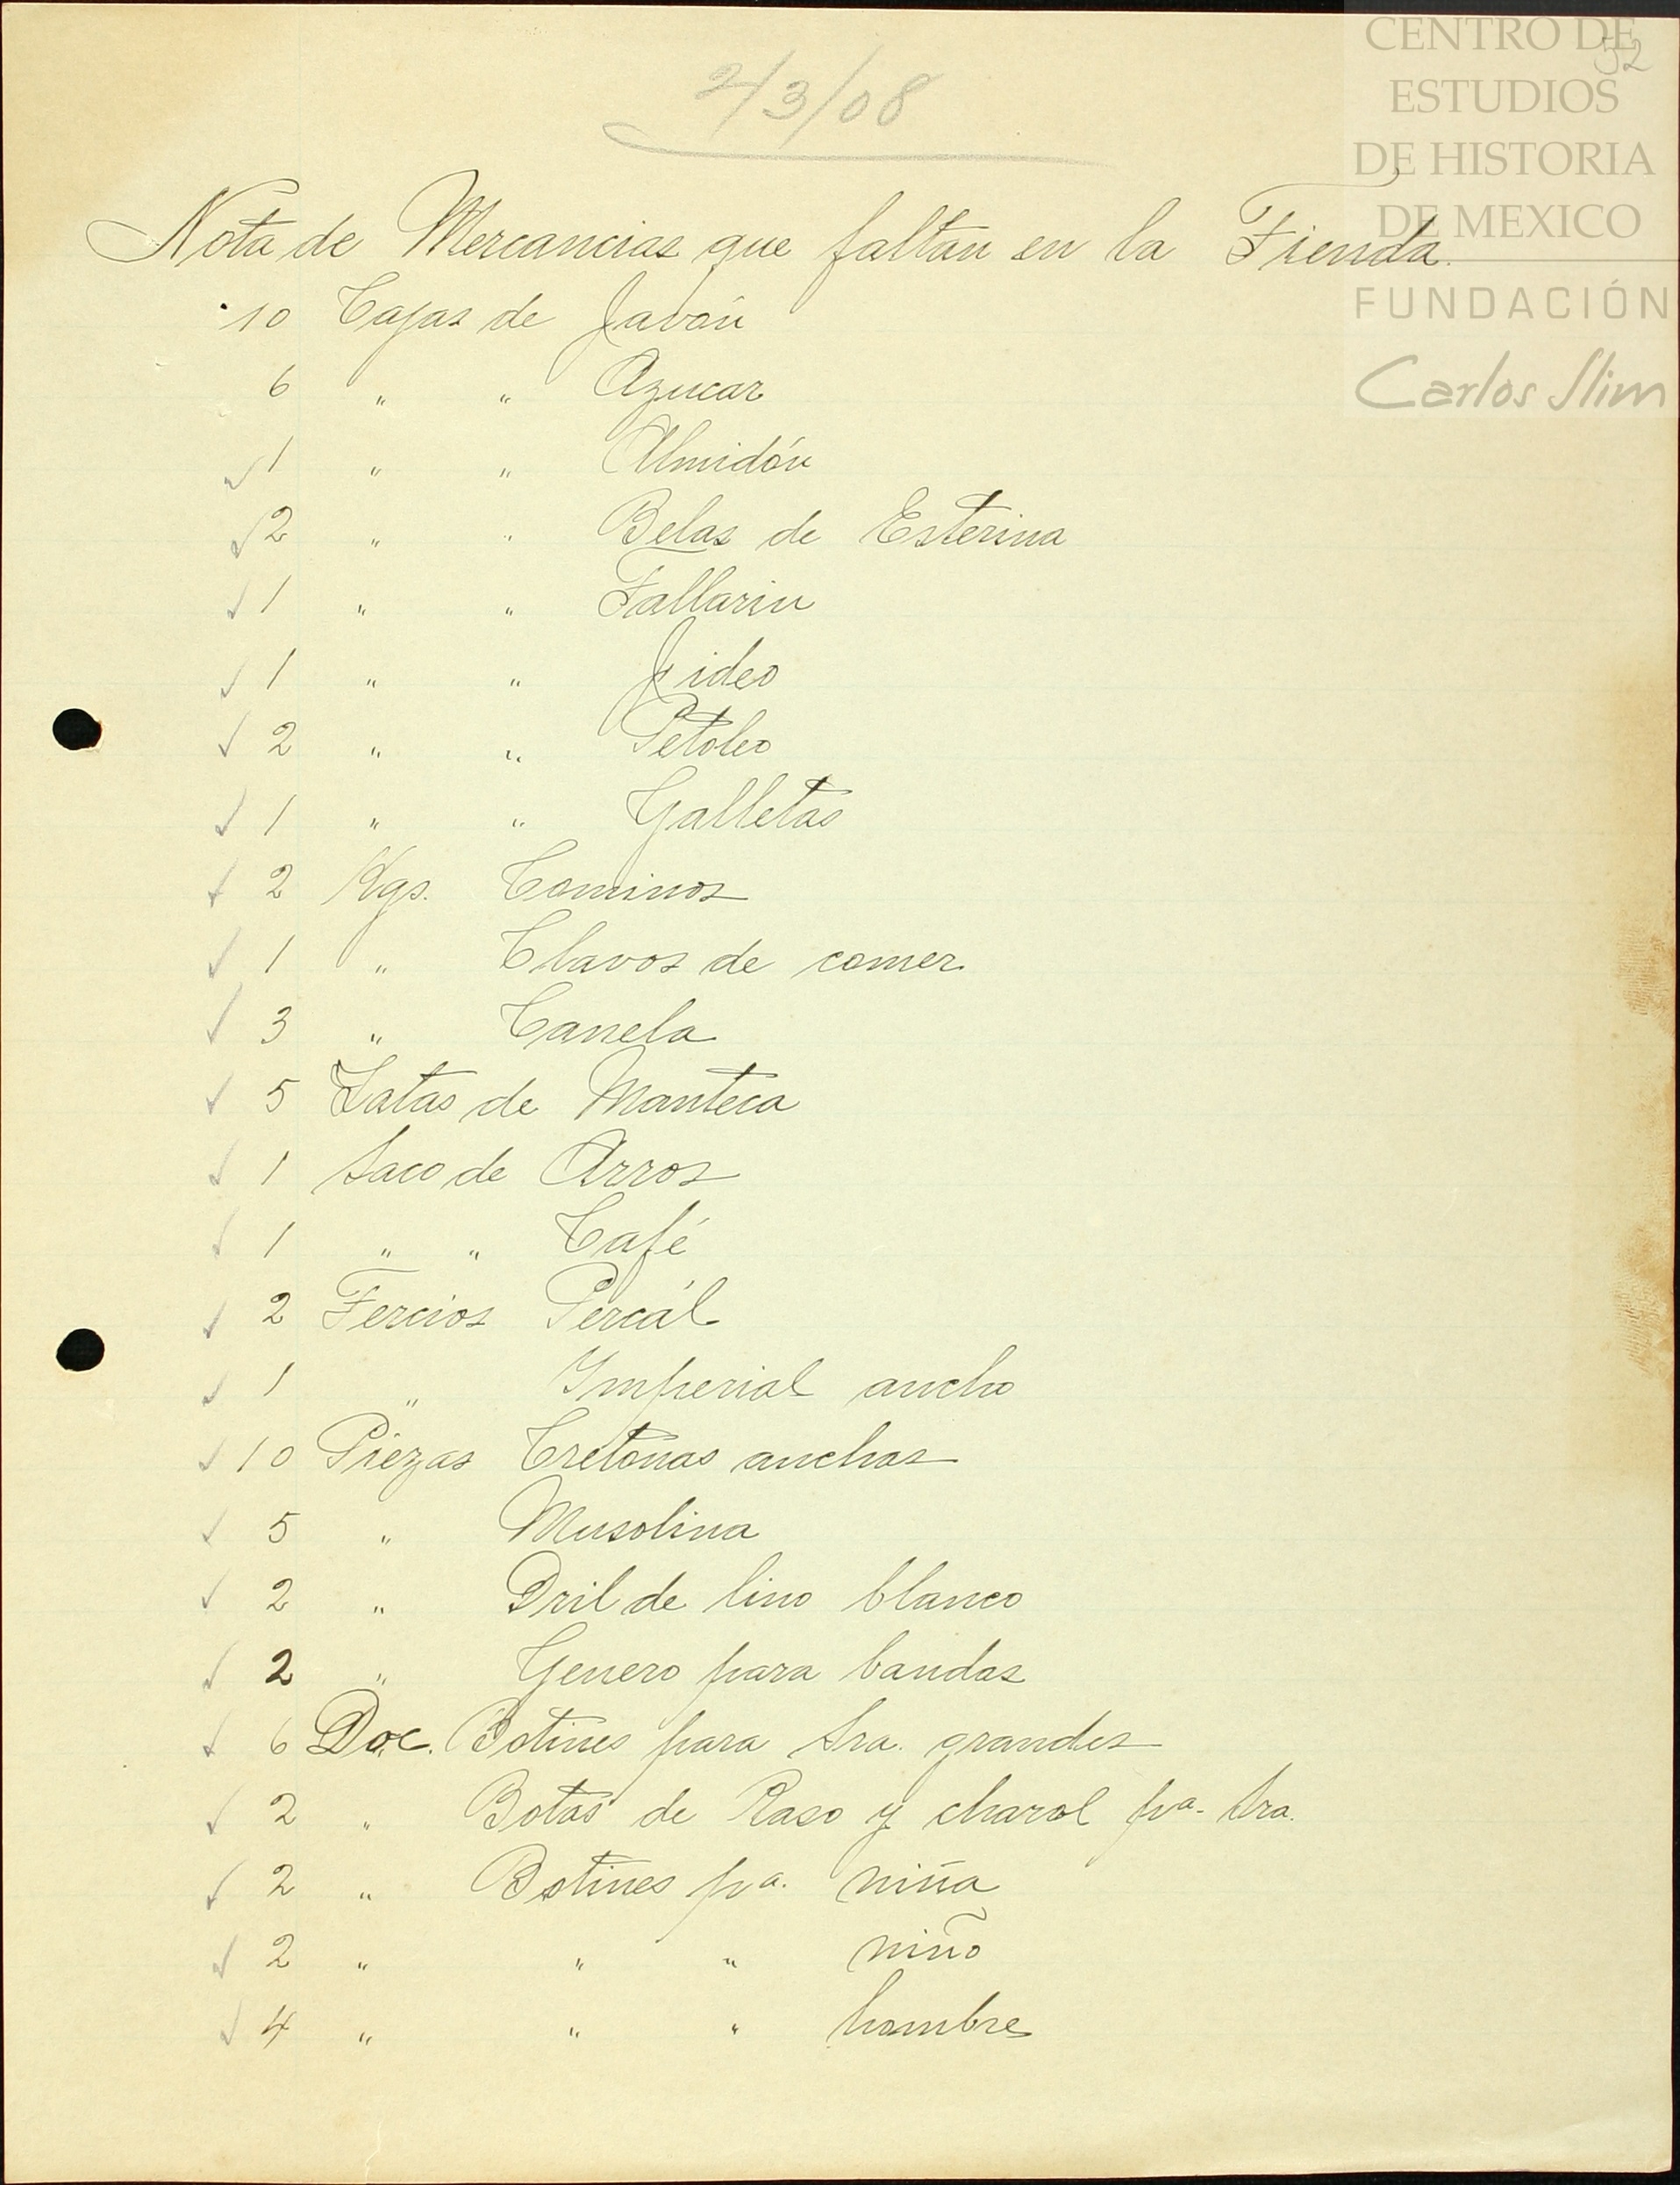 CENTRO DE
ESTUDIOS
DE HISTORIA
DE MEXICO
FUNDACIÓN
Carlos Slim
52
2/3/08
Nota de Mercancias que faltan en la Tienda.
10 Cajas de Javón
6 " " Azucar
1 " " Almidón
2 " " Belas de Esterina
1 " " Tallarin
1 " " Fideo
2 " " Petoleo
1 " " Galletas
2 Kgs. Cominos
1 " Clavos de comer
3 " Canela
5 Latas de Manteca
1 Saco de Arros
1 " " Café
2 Tercios Percál
1 " Imperial ancho
10 Piezas Cretonas anchas
5 " Musolina
2 " Dril de lino blanco
2 " Genero para bandas
6 Doc. Botines para Sra. grandes
2 " Botas de Raso y charol pa. Sra.
2 " Botines pa. niña
2 " " " niño
4 " " " hombre